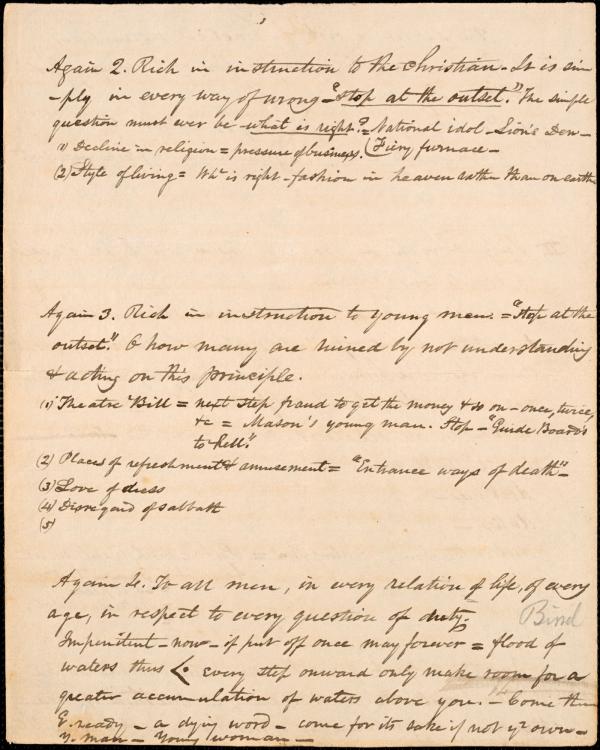 Again 2. Rich in instruction to the Christian - It is sim
-ply in every way of wrong - "Stop at the outset." The simple
question must ever be - what is right? = National idol - Lion's Den -
(1) Decline in religion = pressure of business. (Fiery furnace -
(2) Style of living = Wht is right - fashion in heaven rather than on earth
Again 3. Rich in instruction to young men. = "Stop at the
outset." O how many are ruined by not understanding
& acting on this principle.
(1) Theatre Bill = next step fraud to get the money & so on - once, twice,
&c = Mason's young man. Stop - "Guide Boards
to Hell."
(2) Places of refreshment & amusement = "Entrance ways of death" -
(3) Love of dress
(4) Disregard of sabbath
(5)
Again 4. To all men, in every relation of life, of every
age, in respect to every question of duty.
Bird
Impenitent - now - if put off once may forever = flood of
waters thus < every step onward only make room for a
greater accumulation of waters above you. - Come then
ready - a dying word - come for its sake if not yr own -
Y. man - Young woman -